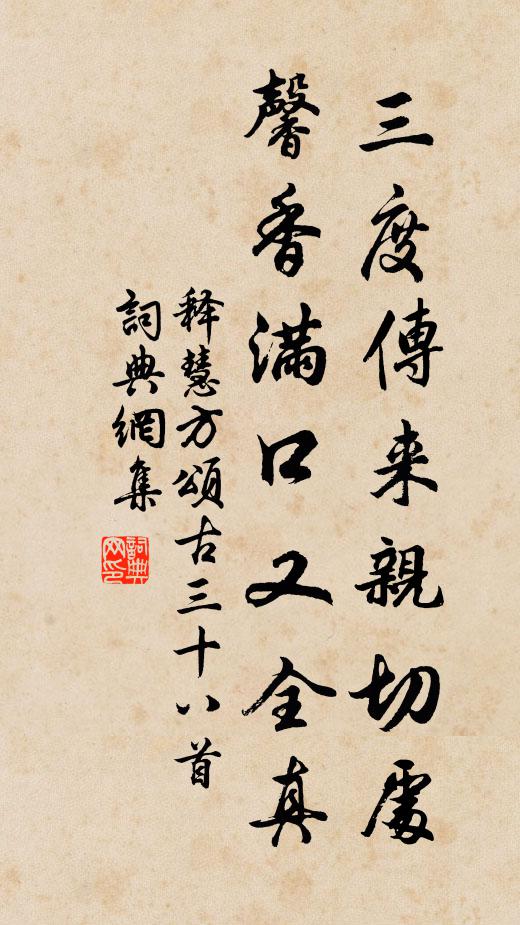 三度傳来親切處
馨香滿口又全真
释慧方頌古三十八首
詞典網集
詞典网印